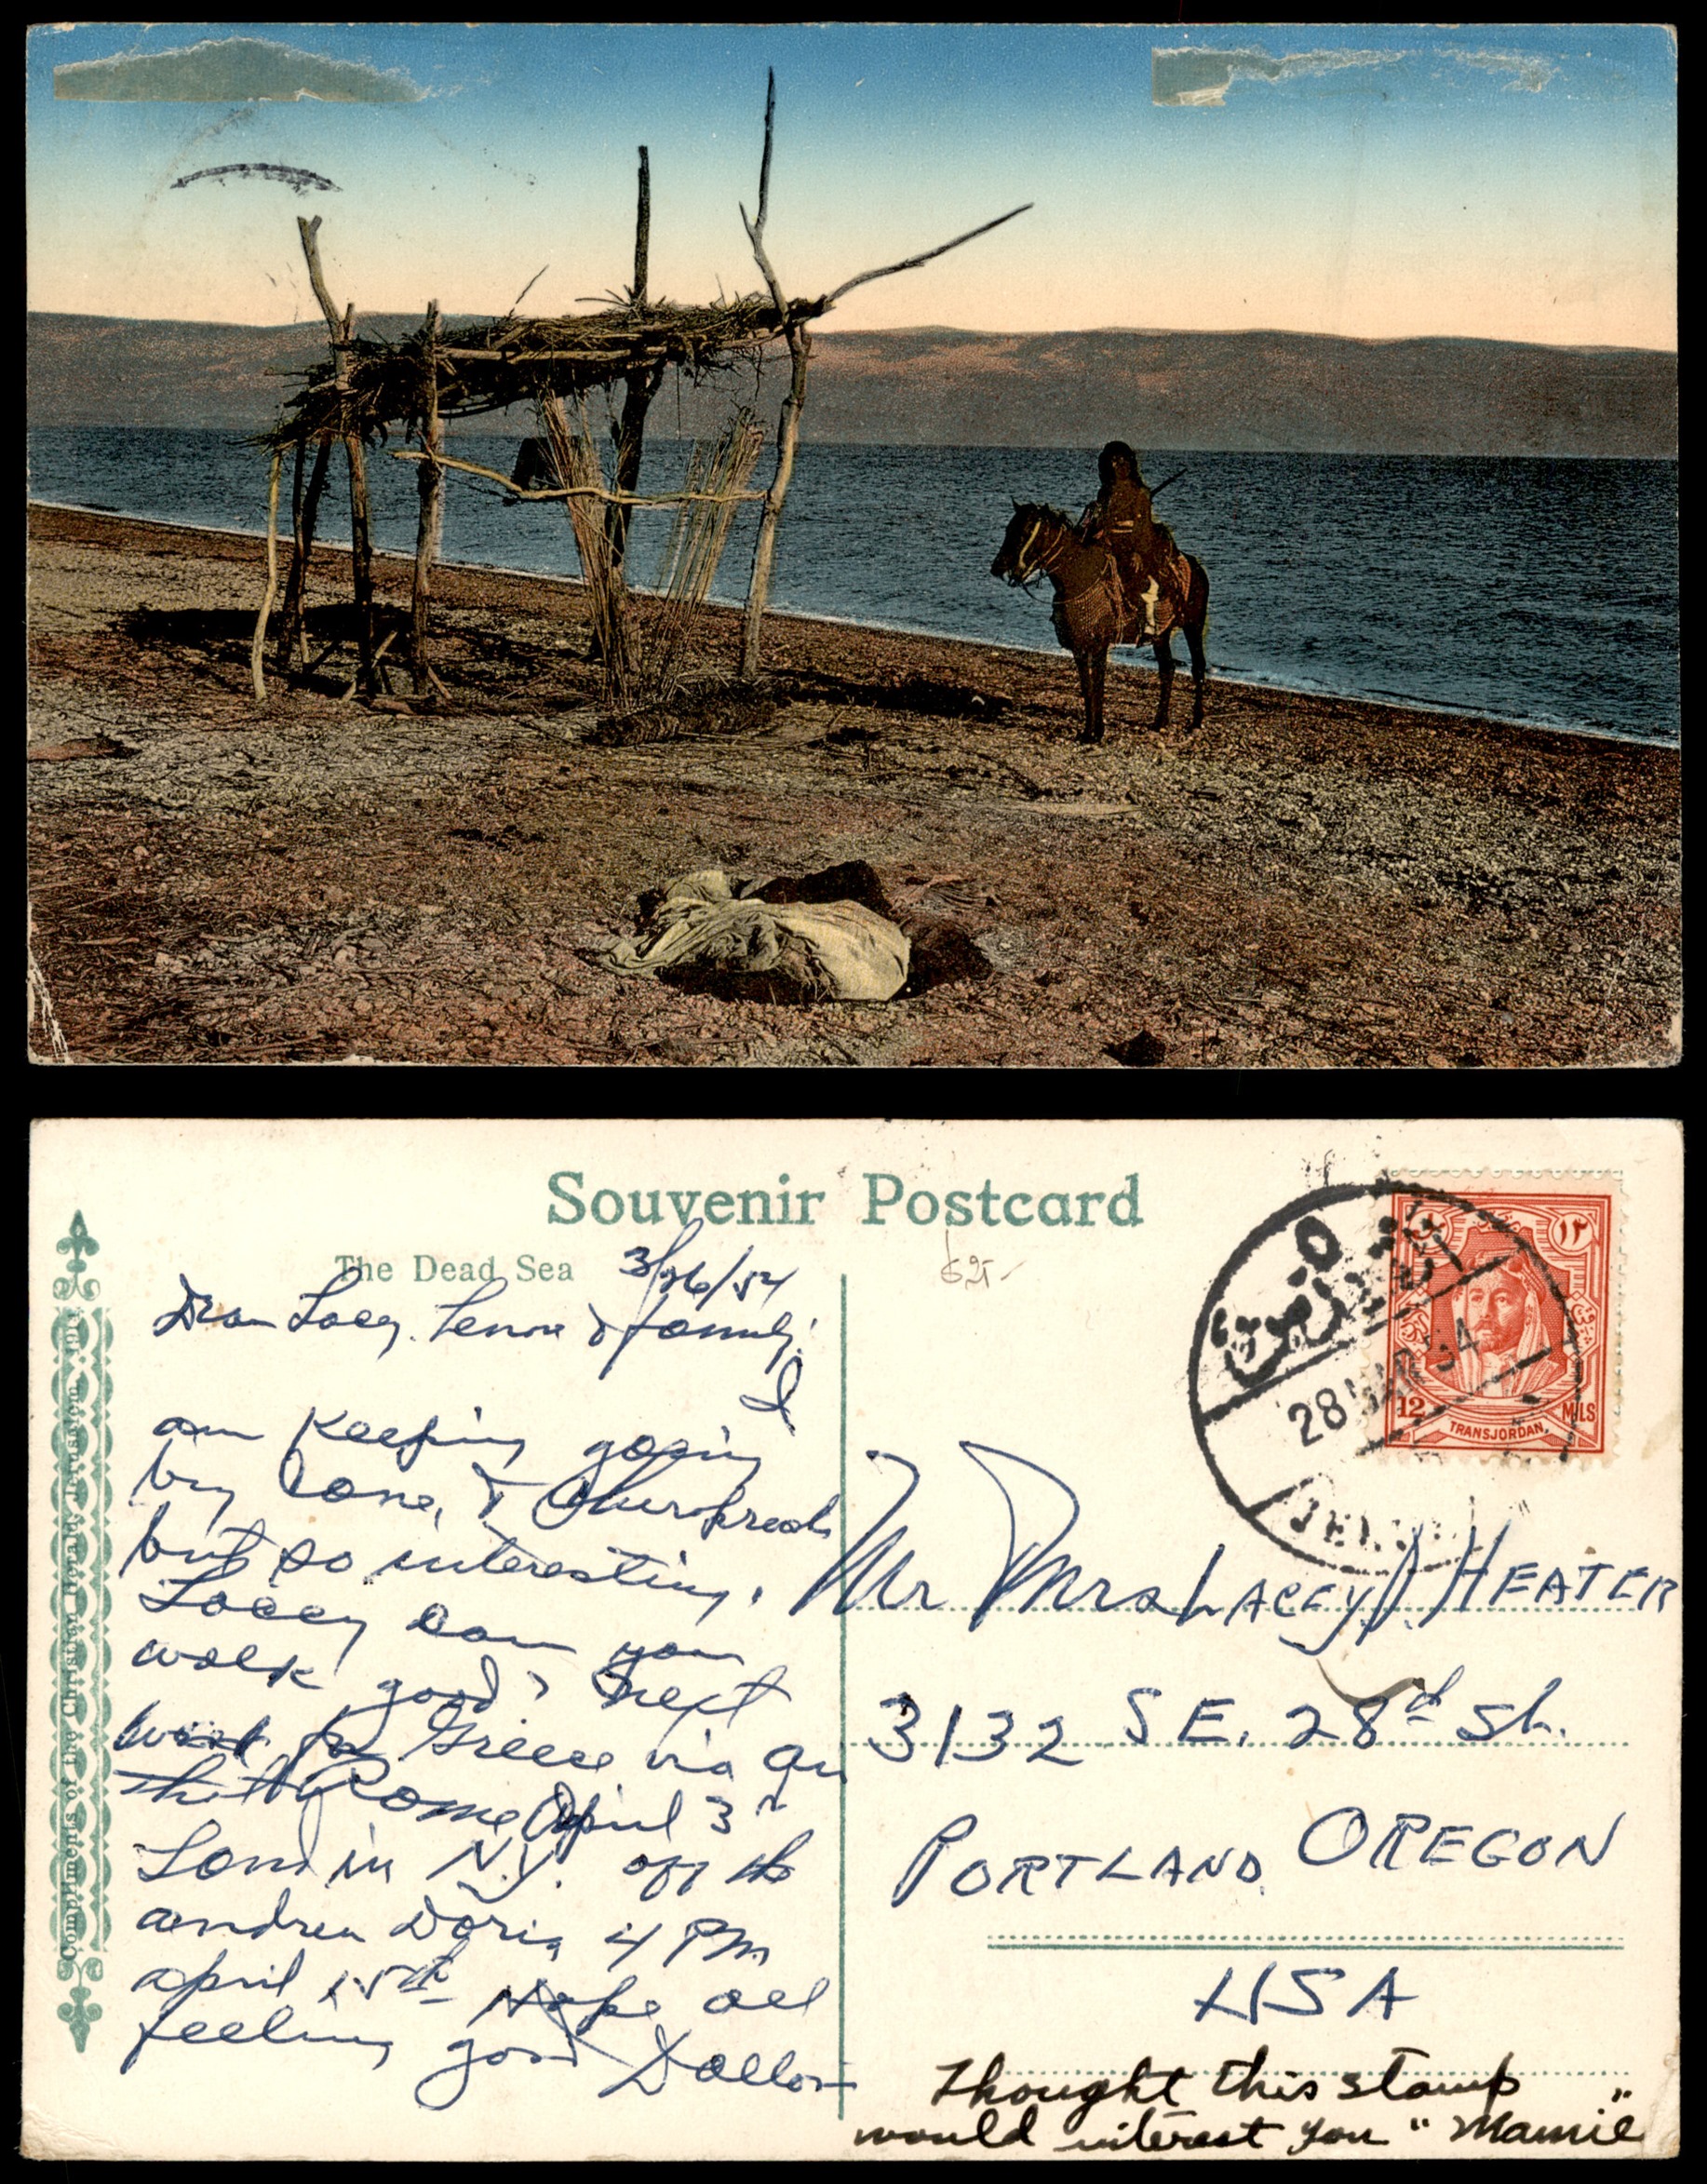 Souvenir Postcard
The Dead Sea 3/26/54
Dear Lacey, Lenore & family:
I
am keeping going
by cane, &
but so interesting.
Lacey can you
walk good? Next
week for Greece via air
Rome April 3
Land in N.Y. off the
andrea Doria 4 PM
april 15th Hope all
feeling good
Compliments of the Christian Herald, Jerusalem
28 MAR 54
١٢
12 MILS
TRANSJORDAN.
Mr Mrs Lacey D. HEATER
3132 S E. 28d St.
PORTLAND, OREGON
USA
Thought this stamp
would interest you "Mamie"